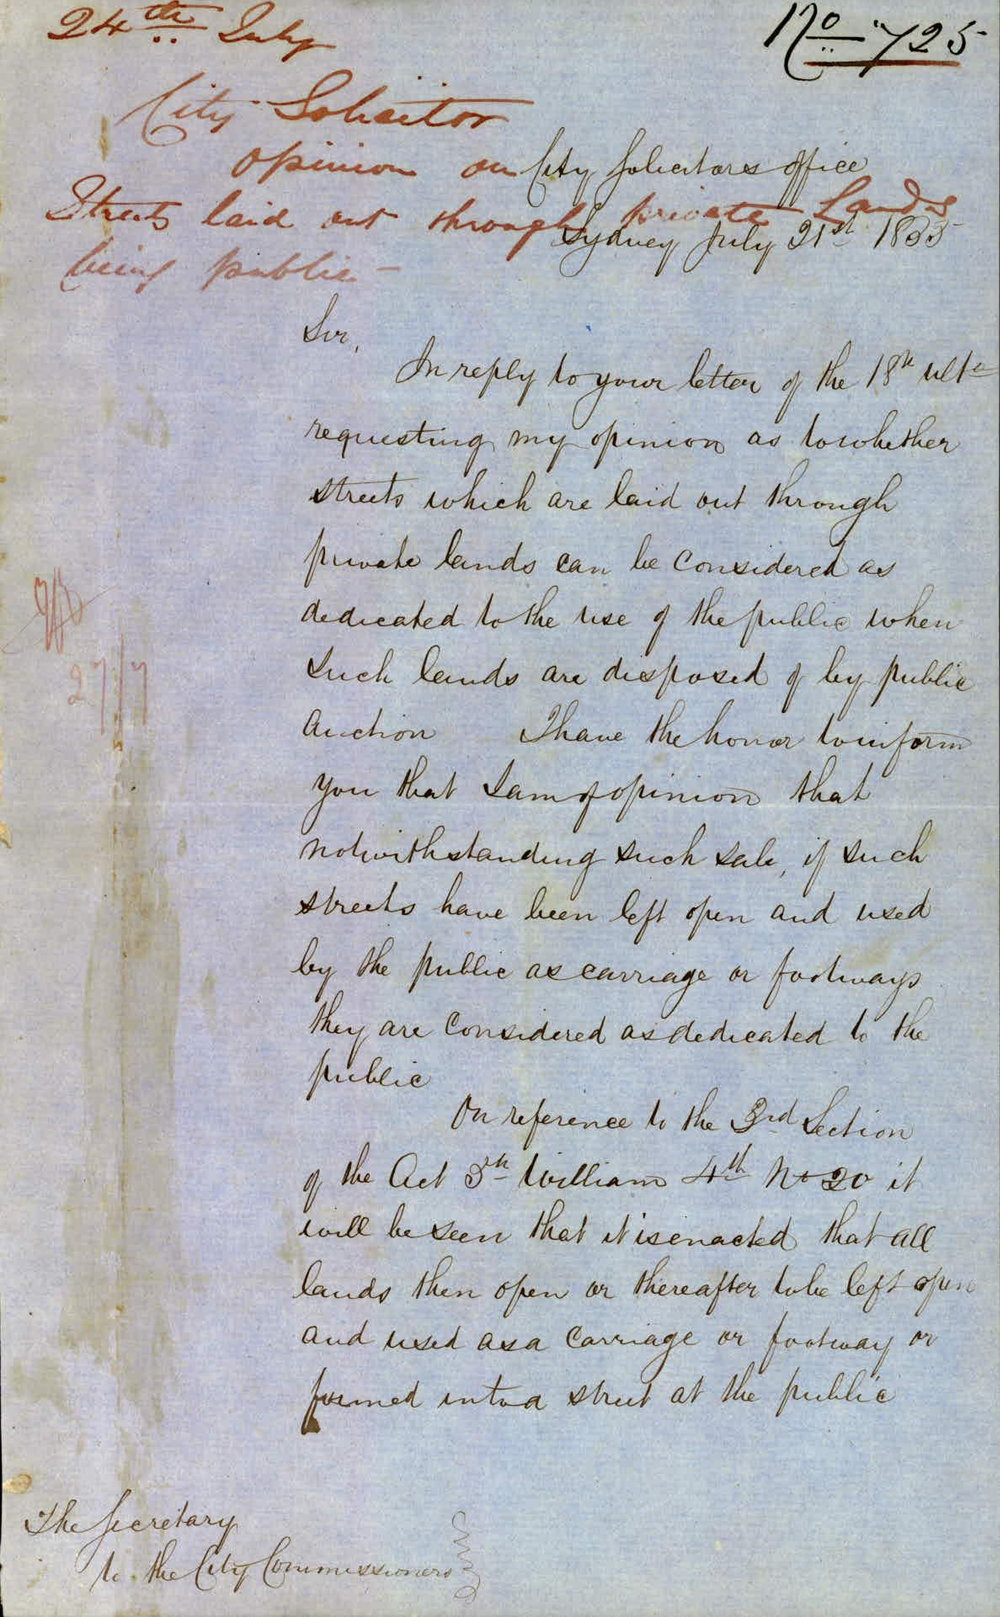 24th July
No 725
City Solicitor
opinion on
Streets laid out through private Lands
being public -
City Solicitors office
Sydney July 21st 1855
Sir,
In reply to your letter of the 18th ulto
requesting my opinion as to whether
streets which are laid out through
private lands can be considered as
dedicated to the use of the public when
such lands are disposed of by public
auction I have the honor to inform
you that I am of opinion that
notwithstanding such sale, if such
streets have been left open and used
by the public as carriage or footways
they are considered as dedicated to the
public
On reference to the 3rd Section
of the Act 5th William 4th No 20 it
will be seen that it is enacted that all
lands then open or thereafter to be left open
and used as a carriage or footway or
formed into a street at the public
27/7
The Secretary
to the City Commissioners